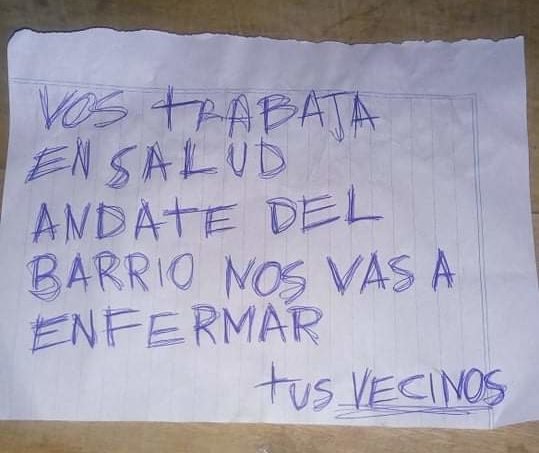 VOS tRABAJA
EN SALUD
ANDAtE DEL
BARRIO NOS VAS A
ENFERMAR
tUS VECINOS